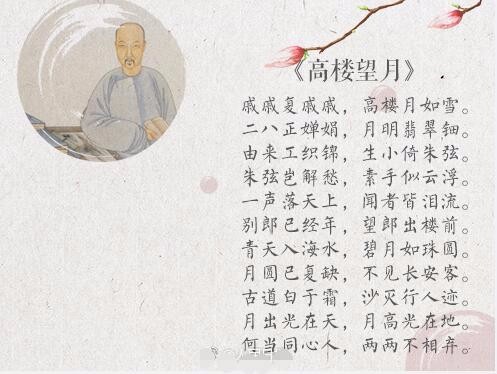 《高楼望月》
戚戚复戚戚，高楼月如雪。
二八正婵娟，月明翡翠钿。
由来工织锦，生小倚朱弦。
朱弦岂解愁，素手似云浮。
一声落天上，闻者皆泪流。
别郎已经年，望郎出楼前。
青天入海水，碧月如珠圆。
月圆已复缺，不见长安客。
古道白于霜，沙灭行人迹。
月出光在天，月高光在地。
何当同心人，两两不相弃。